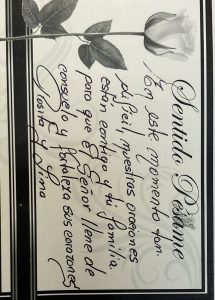 Sentido Pésame
En este momento tan
dificil, nuestras oraciones
están contigo y tu familia
para que El Señor llene de
consuelo y fortaleza sus corazones
Rosita y Nina